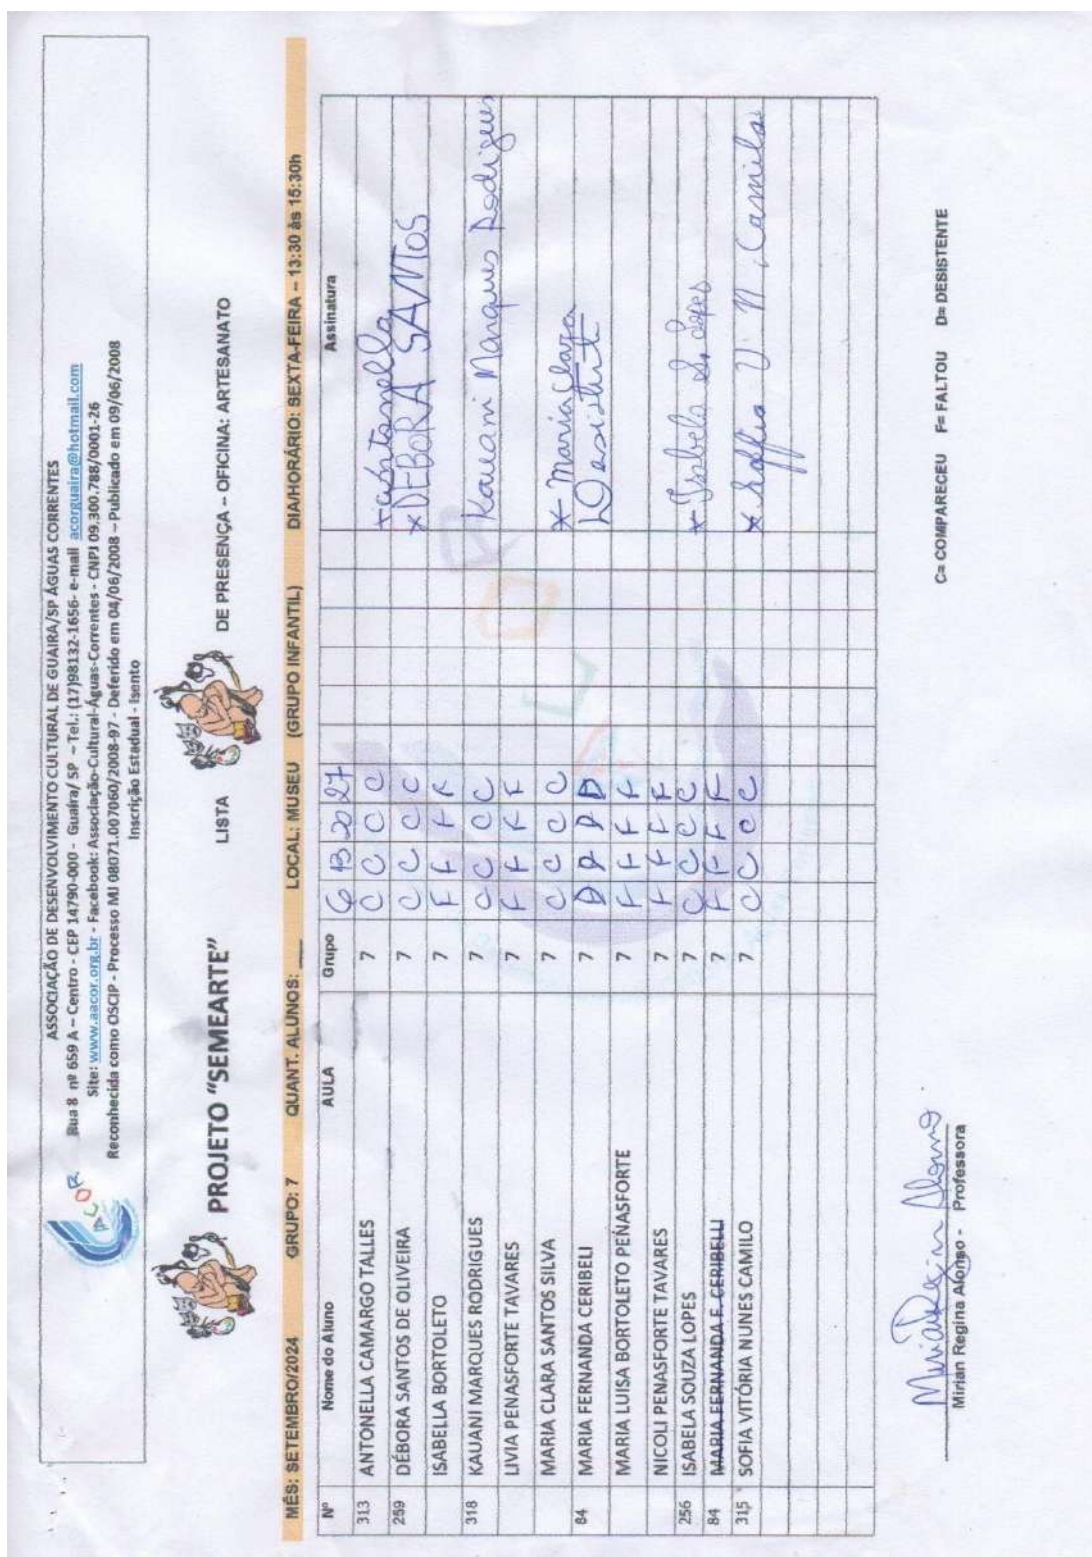 ASSOCIAÇÃO DE DESENVOLVIMENTO CULTURAL DE GUAIRA/SP ÁGUAS CORRENTES
Rua 8 nº 659 A – Centro - CEP 14790-000 - Guaira/ SP – Tel.: (17)98132-1656- e-mail acorguaira@hotmail.com
Site: www.aacor.org.br - Facebook: Associação-Cultural-Águas-Correntes - CNPJ 09.300.788/0001-26
Reconhecida como OSCIP - Processo MJ 08071.007060/2008-97 - Deferido em 04/06/2008 – Publicado em 09/06/2008
Inscrição Estadual - Isento
ACOR
PROJETO "SEMEARTE" LISTA DE PRESENÇA – OFICINA: ARTESANATO
MÊS: SETEMBRO/2024 GRUPO: 7 QUANT. ALUNOS: ___ LOCAL: MUSEU (GRUPO INFANTIL) DIA/HORÁRIO: SEXTA-FEIRA – 13:30 às 15:30h
Nº Nome do Aluno AULA Grupo 6 13 20 27 Assinatura
313 ANTONELLA CAMARGO TALLES 7 C C C C
259 DÉBORA SANTOS DE OLIVEIRA 7 C C C C * DEBORA SANTOS
ISABELLA BORTOLETO 7 F F F F
318 KAUANI MARQUES RODRIGUES 7 C C C C Kauani Marques Rodigues
LIVIA PENASFORTE TAVARES 7 F F F F
MARIA CLARA SANTOS SILVA 7 C C C C * Maria Clara
84 MARIA FERNANDA CERIBELI 7 D D D D Desistente
MARIA LUISA BORTOLETO PENASFORTE 7 F F F F
NICOLI PENASFORTE TAVARES 7 F F F F
256 ISABELA SOUZA LOPES 7 C C C C * Isabela S. Lopes
84 MARIA FERNANDA F. CERIBELLI 7 F F F F
315 SOFIA VITÓRIA NUNES CAMILO 7 C C C C * Soffia V N. Camilo
ACOR
Mirian Regina Alonso
Mirian Regina Afonso - Professora
C= COMPARECEU F= FALTOU D= DESISTENTE